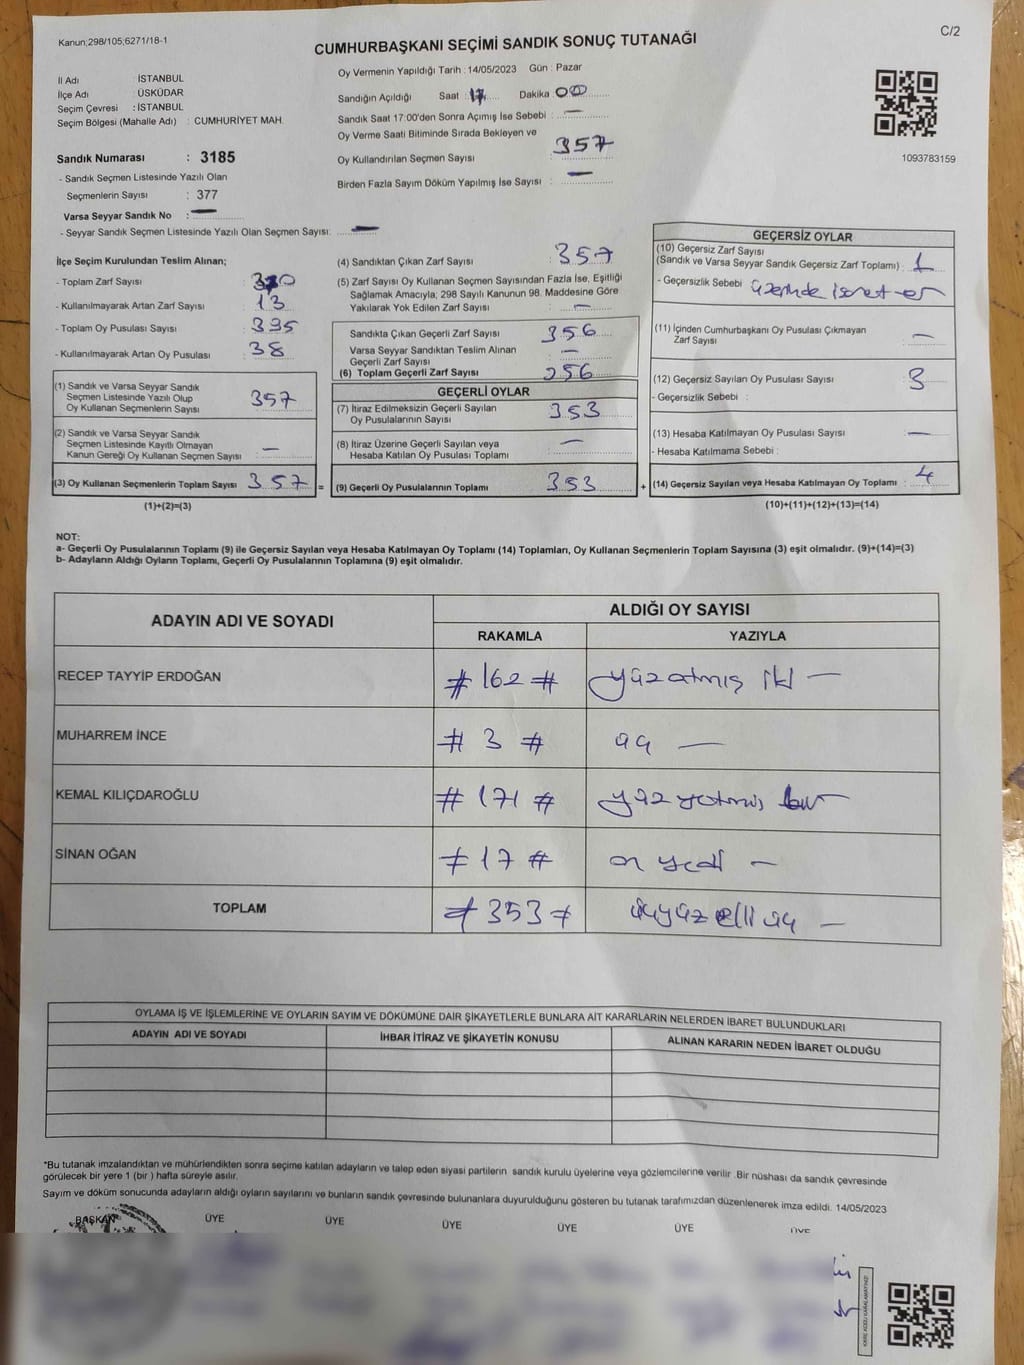 Kanun;298/105;6271/18-1
C/2
CUMHURBAŞKANI SEÇİMİ SANDIK SONUÇ TUTANAĞI
İl Adı : İSTANBUL
İlçe Adı : ÜSKÜDAR
Seçim Çevresi : İSTANBUL
Seçim Bölgesi (Mahalle Adı) : CUMHURİYET MAH.
Sandık Numarası : 3185
- Sandık Seçmen Listesinde Yazılı Olan
Seçmenlerin Sayısı : 377
Varsa Seyyar Sandık No : —
- Seyyar Sandık Seçmen Listesinde Yazılı Olan Seçmen Sayısı: —
Oy Vermenin Yapıldığı Tarih : 14/05/2023 Gün : Pazar
Sandığın Açıldığı Saat : 17 Dakika : 00
Sandık Saat 17:00'den Sonra Açımış İse Sebebi : —
Oy Verme Saati Bitiminde Sırada Bekleyen ve
Oy Kullandırılan Seçmen Sayısı : 357
Birden Fazla Sayım Döküm Yapılmış İse Sayısı : —
1093783159
İlçe Seçim Kurulundan Teslim Alınan;
- Toplam Zarf Sayısı : 370
- Kullanılmayarak Artan Zarf Sayısı : 13
- Toplam Oy Pusulası Sayısı : 395
- Kullanılmayarak Artan Oy Pusulası : 38
(1) Sandık ve Varsa Seyyar Sandık
Seçmen Listesinde Yazılı Olup
Oy Kullanan Seçmenlerin Sayısı 357
(2) Sandık ve Varsa Seyyar Sandık
Seçmen Listesinde Kayıtlı Olmayan
Kanun Gereği Oy Kullanan Seçmen Sayısı : —
(3) Oy Kullanan Seçmenlerin Toplam Sayısı : 357 =
(1)+(2)=(3)
(4) Sandıktan Çıkan Zarf Sayısı : 357
(5) Zarf Sayısı Oy Kullanan Seçmen Sayısından Fazla İse, Eşitliği
Sağlamak Amacıyla; 298 Sayılı Kanunun 98. Maddesine Göre
Yakılarak Yok Edilen Zarf Sayısı : —
Sandıkta Çıkan Geçerli Zarf Sayısı 356
Varsa Seyyar Sandıktan Teslim Alınan
Geçerli Zarf Sayısı —
(6) Toplam Geçerli Zarf Sayısı 356
GEÇERLİ OYLAR
(7) İtiraz Edilmeksizin Geçerli Sayılan
Oy Pusulalarının Sayısı : 353
(8) İtiraz Üzerine Geçerli Sayılan veya
Hesaba Katılan Oy Pusulası Toplamı —
(9) Geçerli Oy Pusulalarının Toplamı 353 +
GEÇERSİZ OYLAR
(10) Geçersiz Zarf Sayısı
(Sandık ve Varsa Seyyar Sandık Geçersiz Zarf Toplamı) : 1
- Geçersizlik Sebebi : üzerinde isret-er
(11) İçinden Cumhurbaşkanı Oy Pusulası Çıkmayan
Zarf Sayısı : —
(12) Geçersiz Sayılan Oy Pusulası Sayısı : 3
- Geçersizlik Sebebi :
(13) Hesaba Katılmayan Oy Pusulası Sayısı : —
- Hesaba Katılmama Sebebi :
(14) Geçersiz Sayılan veya Hesaba Katılmayan Oy Toplamı : 4
(10)+(11)+(12)+(13)=(14)
NOT:
a- Geçerli Oy Pusulalarının Toplamı (9) ile Geçersiz Sayılan veya Hesaba Katılmayan Oy Toplamı (14) Toplamları, Oy Kullanan Seçmenlerin Toplam Sayısına (3) eşit olmalıdır. (9)+(14)=(3)
b- Adayların Aldığı Oyların Toplamı, Geçerli Oy Pusulalarının Toplamına (9) eşit olmalıdır.
ADAYIN ADI VE SOYADI
ALDIĞI OY SAYISI
RAKAMLA YAZIYLA
RECEP TAYYİP ERDOĞAN # 162 # yüzatmış iki —
MUHARREM İNCE # 3 # üç —
KEMAL KILIÇDAROĞLU # 171 # yüz yetmiş bir —
SİNAN OĞAN # 17 # on yedi —
TOPLAM # 353 # üçyüz elli üç —
OYLAMA İŞ VE İŞLEMLERİNE VE OYLARIN SAYIM VE DÖKÜMÜNE DAİR ŞİKAYETLERLE BUNLARA AİT KARARLARIN NELERDEN İBARET BULUNDUKLARI
ADAYIN ADI VE SOYADI İHBAR İTİRAZ VE ŞİKAYETİN KONUSU ALINAN KARARIN NEDEN İBARET OLDUĞU
*Bu tutanak imzalandıktan ve mühürlendikten sonra seçime katılan adayların ve talep eden siyasi partilerin sandık kurulu üyelerine veya gözlemcilerine verilir .Bir nüshası da sandık çevresinde
görülecek bir yere 1 (bir ) hafta süreyle asılır.
Sayım ve döküm sonucunda adayların aldığı oyların sayılarını ve bunların sandık çevresinde bulunanlara duyurulduğunu gösteren bu tutanak tarafımızdan düzenlenerek imza edildi. 14/05/2023
BAŞKAN ÜYE ÜYE ÜYE ÜYE ÜYE ÜYE